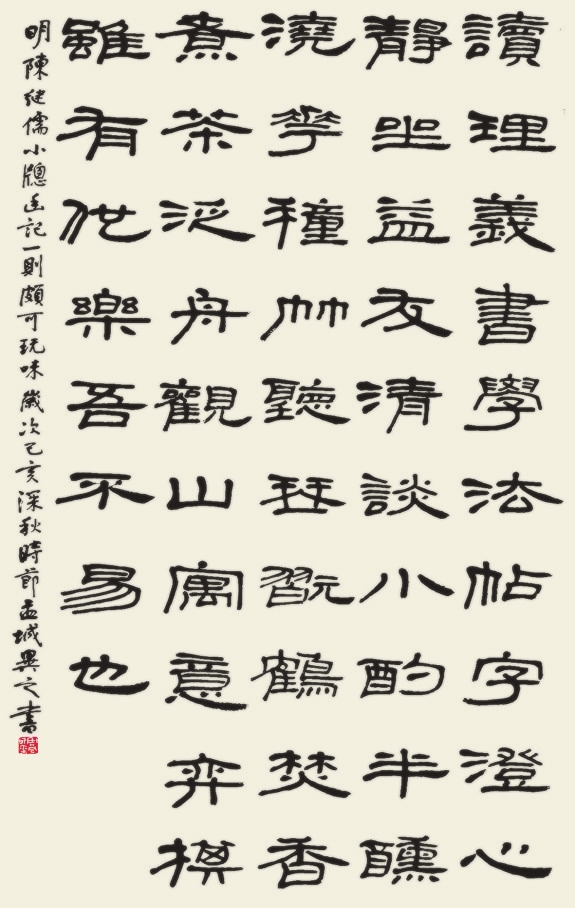 讀理義書學法帖字澄心
靜坐益友清談小酌半醺
澆花種竹聽琴翫鶴焚香
煮茶泛舟觀山寓意弈棋
雖有他樂吾不易也
明陳继儒小牕幽記一則頗可玩味歲次己亥深秋時節孟城異之書